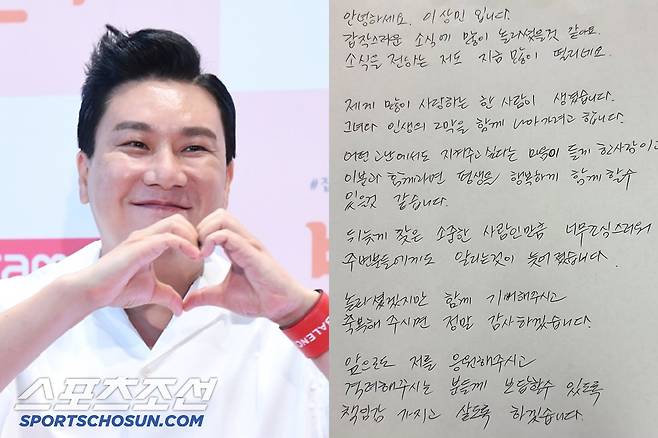 스포츠조선
SPORTSCHOSUN.COM
BALENC
안녕하세요. 이상민 입니다.
갑작스러운 소식에 많이 놀라셨을것 같아요.
소식을 전하는 저도 지금 많이 떨리네요.
제게 많이 사랑하는 한 사람이 생겼습니다.
그녀와 인생의 2막을 함께 나아가려고 합니다.
어떤 고난에서도 지켜주고 싶다는 마음이 들게 한사람이고
이분과 함께라면 평생을 행복하게 함께 할수
있을것 같습니다.
뒤늦게 찾은 소중한 사람인만큼 너무조심스러워
주변분들에게도 알리는것이 늦어졌습니다.
놀라셨겠지만 함께 기뻐해주시고
축복해 주시면 정말 감사하겠습니다.
앞으로도 저를 응원해주시고
격려해주시는 분들께 보답할수 있도록
책임감 가지고 살도록 하겠습니다.